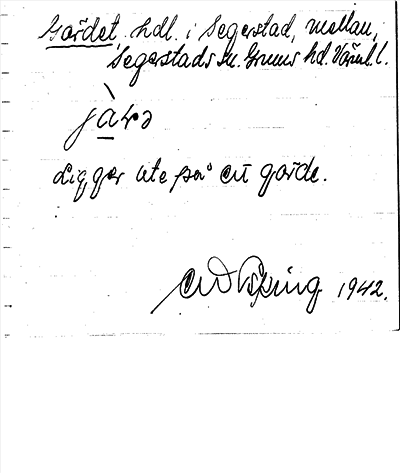 Gärdet. hdl. i Segerstad, mellan,
Segerstads sn. Grums hd. Värml. l.
Ligger ute på ett gärde.
1942.